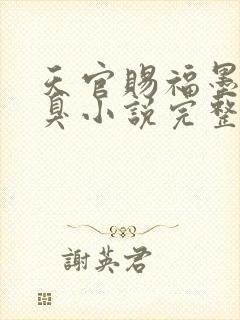 天官賜福墨
臭小說完整
謝英君